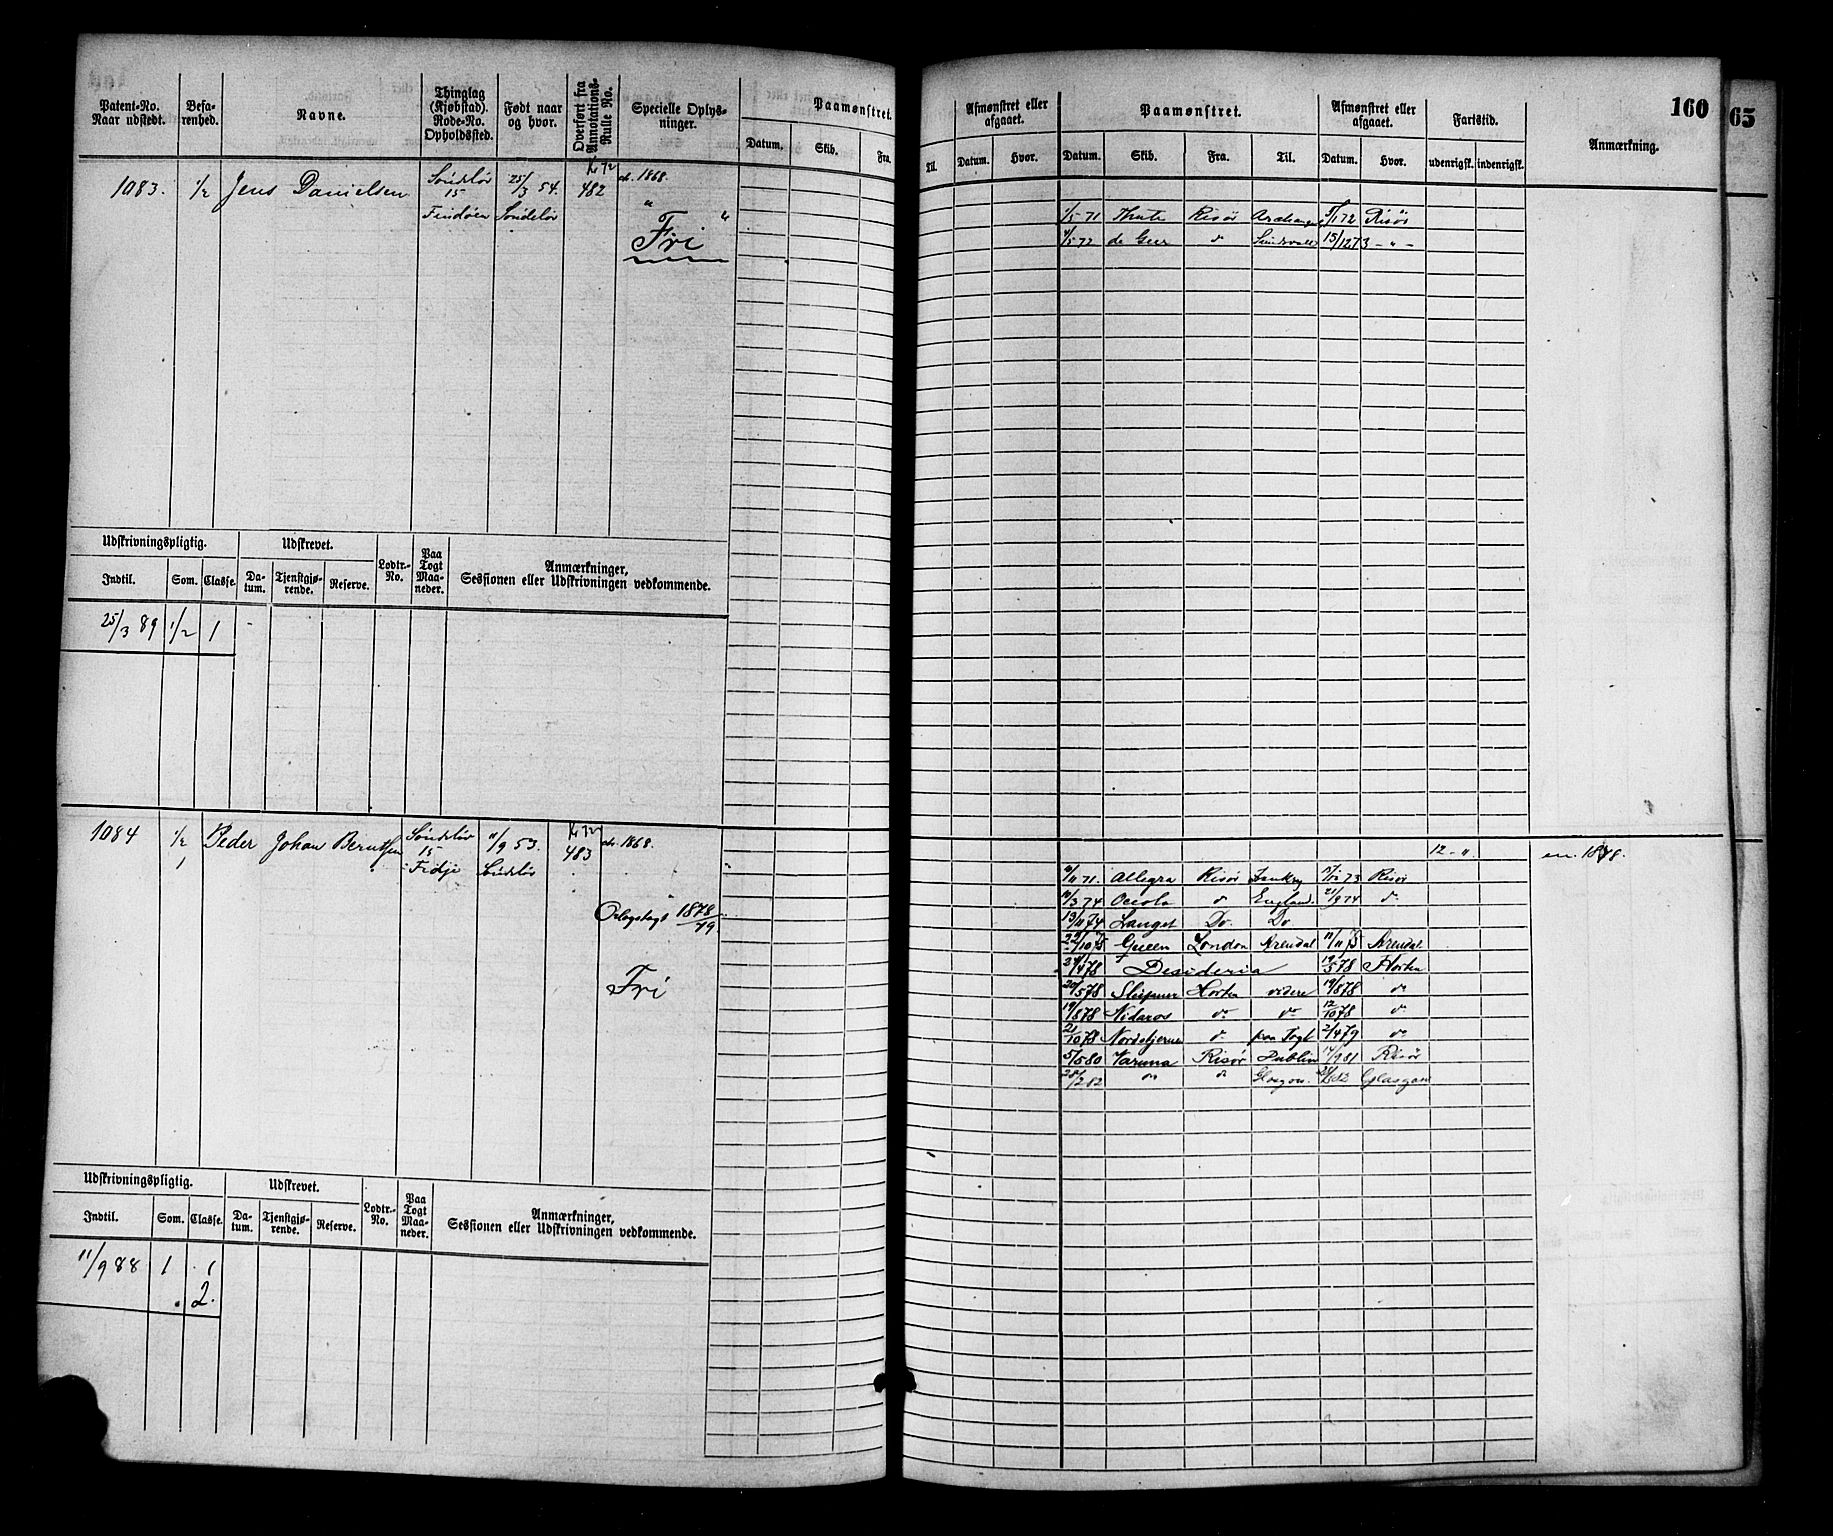 160
65
Patent-No. Naar udstedt.
Befarenhed.
Navne.
Thinglag (Kjøbstad). Rode-No. Opholdssted.
Født naar og hvor.
Overført fra Annotations-Rulle No.
Specielle Oplysninger.
Paamønstret.
Datum. Skib. Fra. Til.
Afmønstret eller afgaaet.
Datum. Hvor.
Paamønstret.
Datum. Skib. Fra. Til.
Afmønstret eller afgaaet.
Datum. Hvor.
Fartstid.
udenrigsk. indenrigsk.
Anmærkning.
1083. 1/2 Jens Danielsen Søndeløv 25/3 54. 482 1868.
15
Findøen Søndeløv
Fri
1/5 71 Risør 5/1 72 Risør
/5 72 de Geer d Sundsvall 15/12 73 - " -
Udskrivningspligtig. Udskrevet. Lodtr.-No. Paa Togt Maaneder. Anmærkninger, Sessionen eller Udskrivningen vedkommende.
Indtil. Som. Classe. Datum. Tjenstgjørende. Reserve.
25/3 89 1/2 1
1084 1/2 Peder Johan Berntsen Søndeløv 11/9 53. 483 1868.
1 15
Fidje Søndeløv
Orlogstogt 1878/79.
Fri
12 - "
/11 71. Allegra Risør 73 Risør
/3 74 Osceola d England. 21/9 74 d.
13/11 74 Langet Do. Do
22/10 75 Queen London Arendal 11/11 75 Arendal
24/4 78 Desideria 19/5 78 Horten
20/5 78 Sleipner Horten videre 19/8 78 do
19/8 78 Nidaros do do 12/10 78 d
21/10 78 Nordstjernen d. paa Togt 2/4 79 do
5/5 80 Varuna Risør Dublin /9 81 Risør
28/2 82 do d Glasgow. 82 Glasgow
Udskrivningspligtig. Udskrevet. Lodtr.-No. Paa Togt Maaneder. Anmærkninger, Sessionen eller Udskrivningen vedkommende.
Indtil. Som. Classe. Datum. Tjenstgjørende. Reserve.
11/9 88 1 1
2.